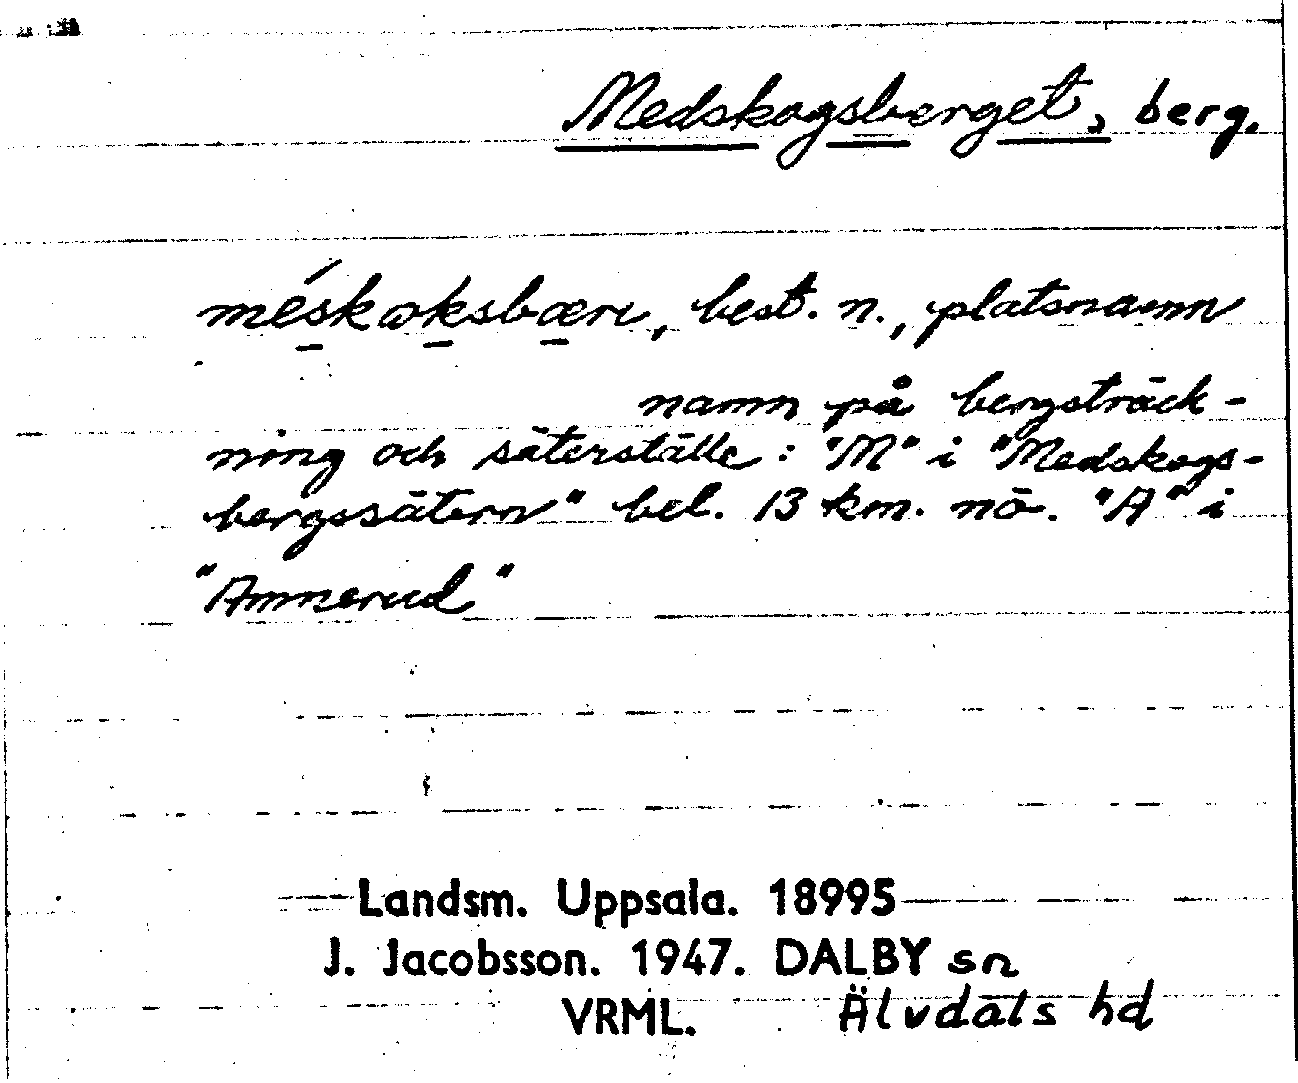 Medskogsberget, berg.
méskoksbære, best. n., platsnamn
namn på bergsträck-
ning och säterställe: "M" i "Medskogs-
bergssätern" bel. 13 km. nö. "A" i
"Amnerud"
Landsm. Uppsala. 18995
J. Jacobsson. 1947. DALBY sn
VRML. Älvdals hd